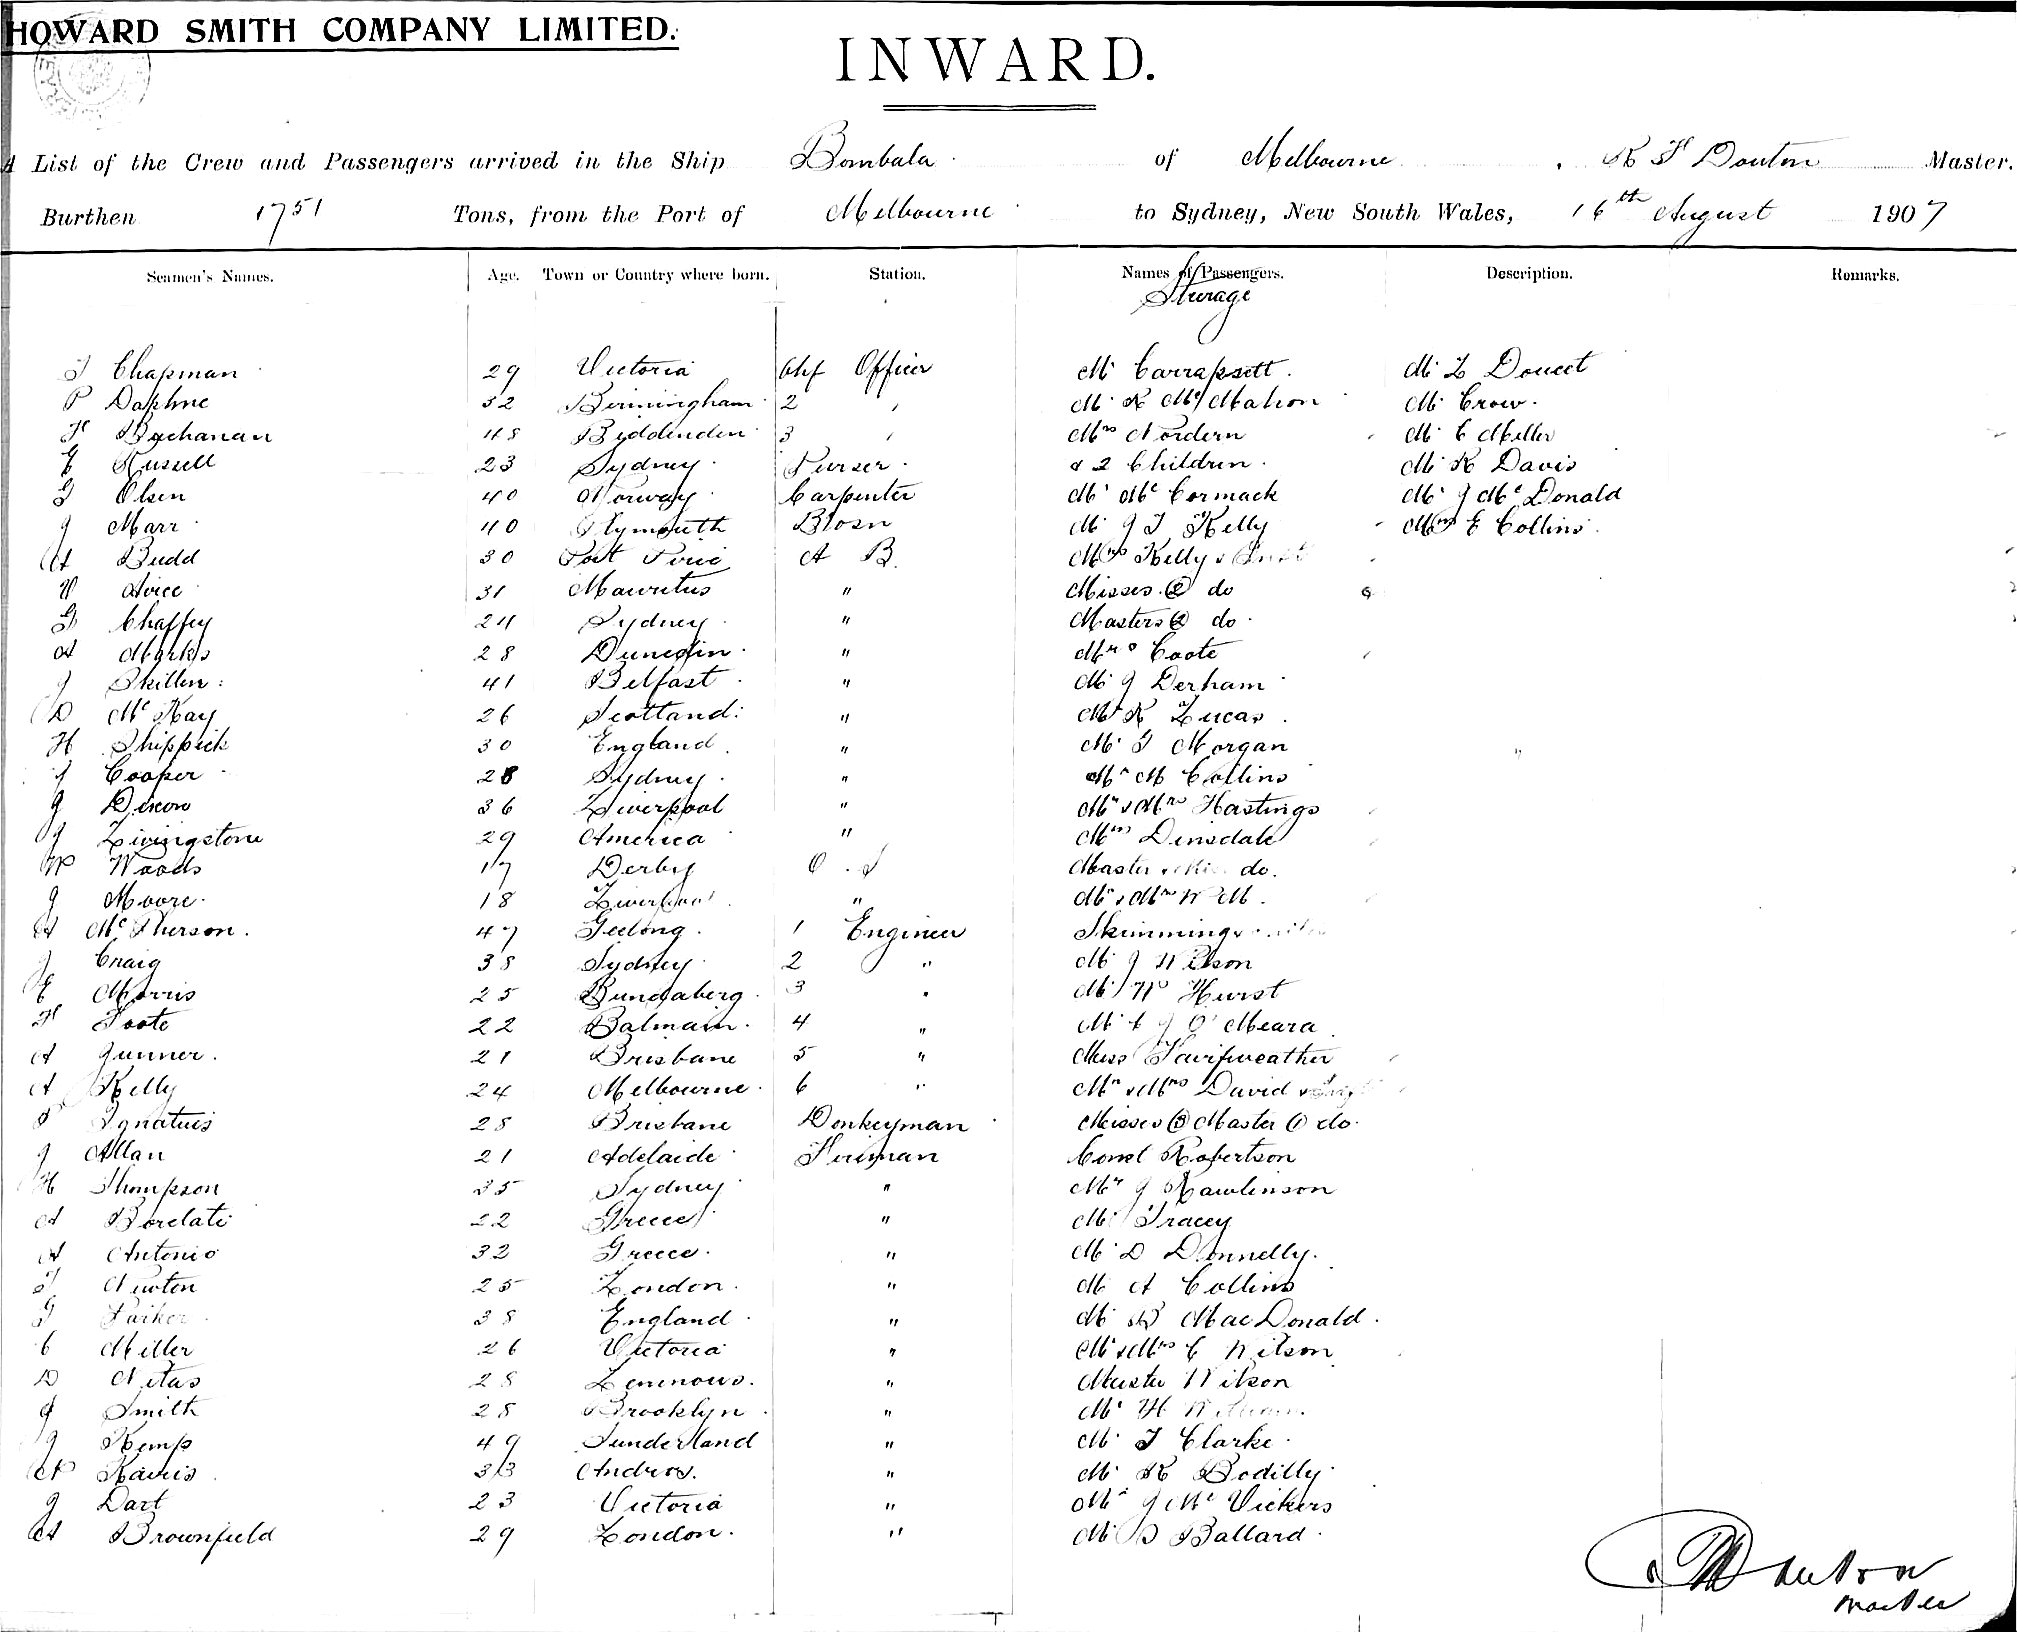 HOWARD SMITH COMPANY LIMITED.
INWARD.
A List of the Crew and Passengers arrived in the Ship Bombala of Melbourne, R F Douton Master.
Burthen 1751 Tons, from the Port of Melbourne to Sydney, New South Wales, 16th August 1907
Seamen's Names. Age. Town or Country where born. Station. Names of Passengers. Description. Remarks.
Sturage
T Chapman 29 Victoria Chf Officer Mr Carrapsett. Mr L Doucet
P Daphne 32 Birmingham 2 " Mr R McMahon Mr Crow.
F Buchanan 48 Biddenden 3 " Mrs Nordern Mr C Miller
E Russell 23 Sydney Purser & 2 Children. Mr R Davis
Olsen 40 Norway Carpenter Mr McCormack Mr J McDonald
J Marr 40 Plymouth Btosn Mr J T Kelly Mrs E Collins.
A Budd 30 Port Pirie A B. Mrs Kelly &
31 Mauritus " Misses (2) do
G Chaffey 24 Sydney " Masters (2) do
A Marks 28 Dunedin " Mrs Coote
J Skillen 41 Belfast " Mr J Derham
D McKay 26 Scotland " Mr R Lucas
H Shippick 30 England " Mr T Morgan
J Cooper 28 Sydney " Mr M Collins
J Dixon 36 Liverpool " Mr & Mrs Hastings
J Livingstone 29 America " Mrs Dinsdale
W Woods 17 Derby O. S Master & do.
J Moore 18 Liverpool " Mr & Mrs W M.
A McPherson. 47 Geelong 1 Engineer Skimming
J Craig 38 Sydney 2 " Mr J Wilson
E Morris 25 Bundaberg 3 " Mr W Hurst
F Foote 22 Balmain. 4 " Mr J O'Meara
A Gunner. 21 Brisbane 5 " Miss Fairweather
A Kelly 24 Melbourne 6 " Mr & Mrs David &
P Ignatuis 28 Brisbane Donkeyman Misses (3) Master (1) do.
J Allan 21 Adelaide Fireman Robertson
H Thompson 35 Sydney " Mr J Rawlinson
A Borelati 22 Greece " Mr Tracey
A Antonio 32 Greece. " Mr D Donnelly.
T Newton 25 London. " Mr A Collins
G Parker 38 England " Mr D MacDonald.
C Miller 26 Victoria " Mr & Mrs C Wilson
D Nitas 28 " Master Wilson
J Smith 28 Brooklyn " Mr H
J Kemp 49 Sunderland " Mr T Clarke
33 Andros. " Mr R Bodilly
J Dart 23 Victoria " Mr J McVickers
A Brownfield 29 London. " Mr D Ballard
R F Douton
Master